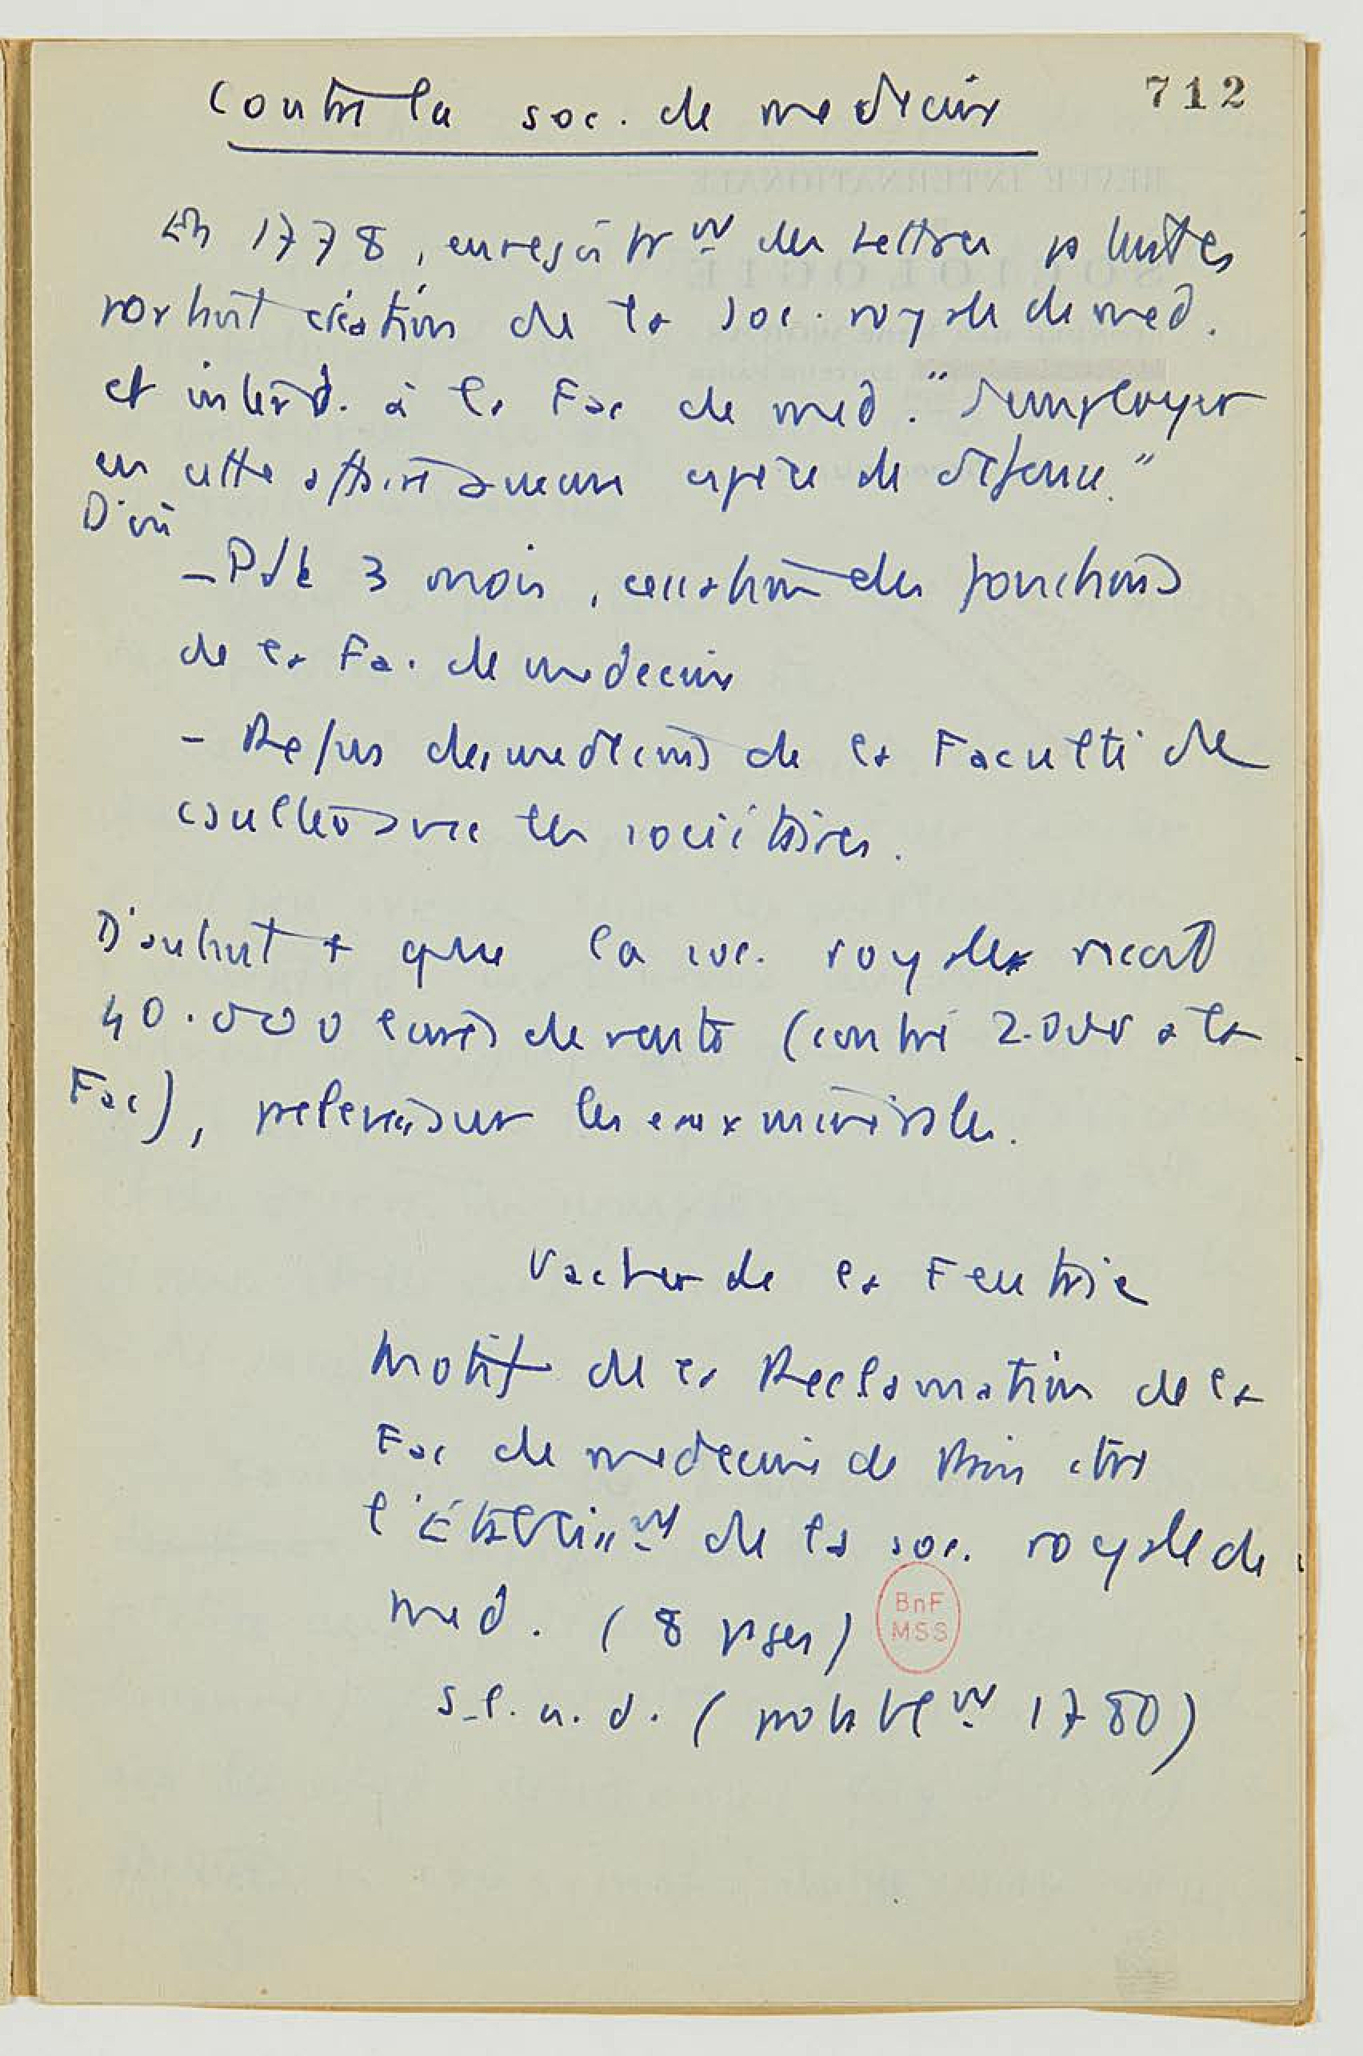 712
Contre la soc. de medecine
En 1778, enregistrnt des Lettres patentes
portant création de la soc. royale de med.
et interd. à la Fac de med. "d'employer
en cette affaire aucune espèce de défense."
D'où
- Pdt 3 mois, cessation des fonctions
de la Fac. de medecine
- Refus des medecins de la Faculté de
consulter avec les sociétaires.
D'autant + que la soc. royale recoit
40.000 livres de rente (contre 2.000 a la
Fac), prelevées sur les eaux minérales.
Vacher de la Feutrie
Motif de la Reclamation de la
Fac de medecine de Paris ctre
l'Établissnt de la soc. royale de
med. (8 pages)
BnF
MSS
s.l.n.d. (probablnt 1780)